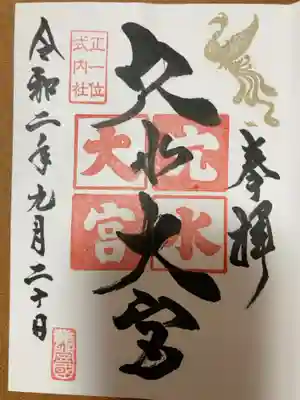 奉拝
穴水大宮
穴水
大宮
正一位
式内社
令和二年九月二十日